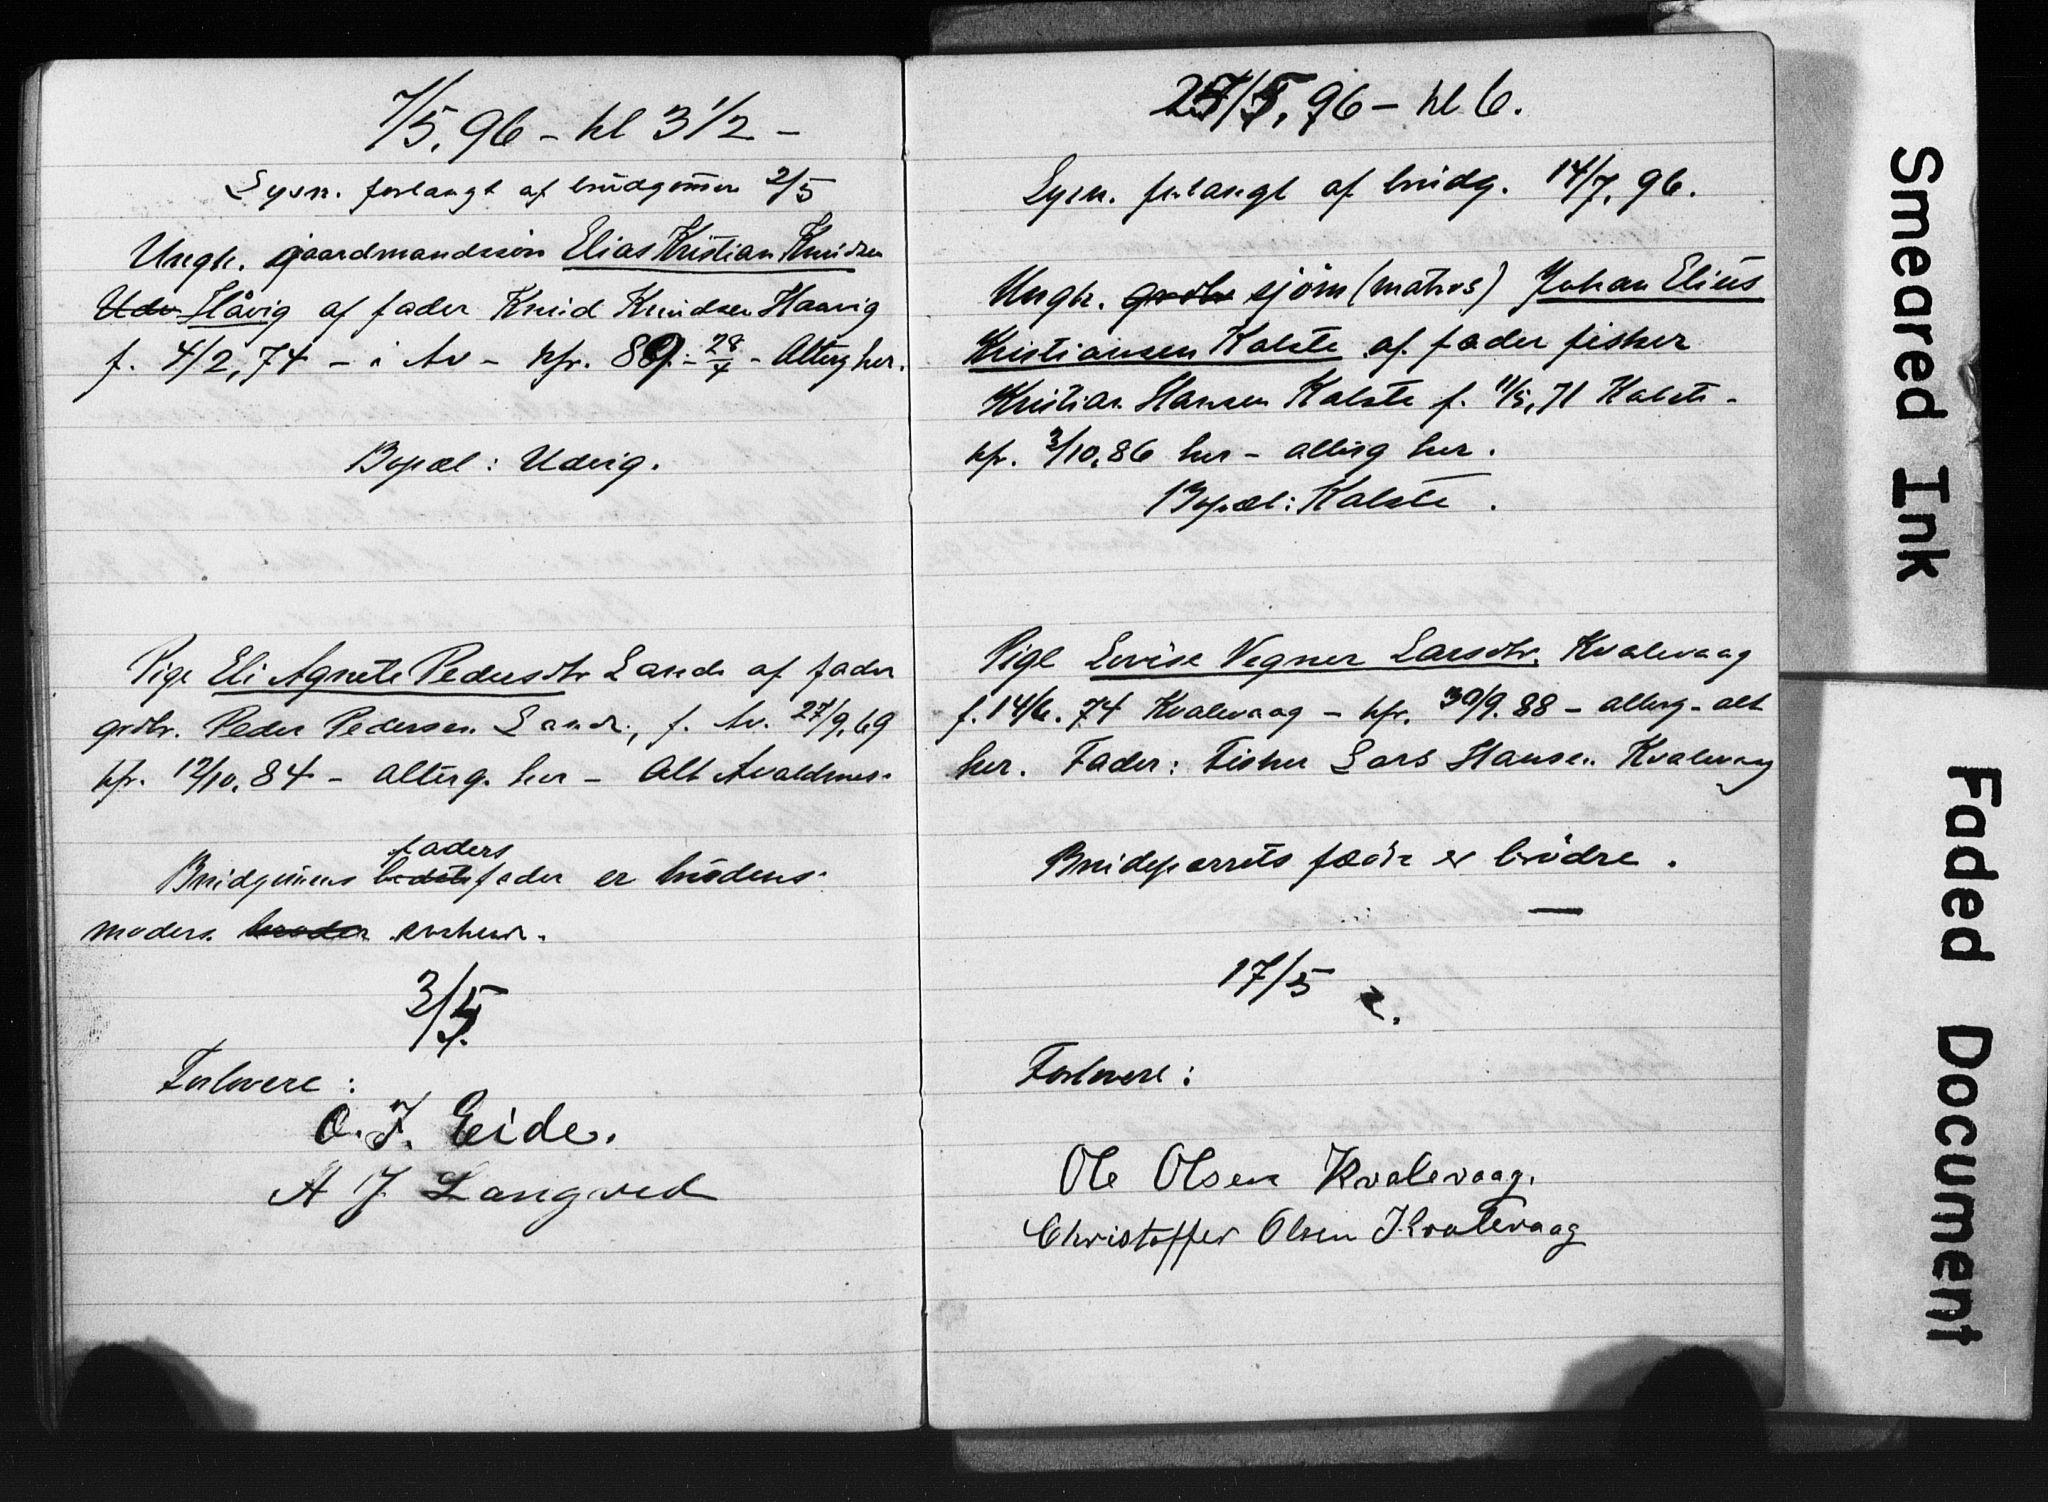 7/5, 96 - kl 3 1/2 -
Lysn. forlangt af brudgommen 2/5
Ungk. gaardmandssøn Elias Kristian Knudsen
Udv Håvig af fader Knud Knudsen Haavig
f. 4/2, 74 - i Av - kfr. 89 - 28/4 - Alterg her.
Bopæl: Udvig.
Pige Eli Agnete Pedersdtr Sande af fader
grdbr. Peder Pedersen Sande, f. Av. 27/9, 69
kfr. 12/10, 84 - alterg. her - Alt Avaldsnes.
faders
Brudgommens fader er brudens
moders broder
3/5.
Forlovere:
O. J. Eide.
A J Langved
25/5, 96 - kl 6.
Lysn. forlangt af brudg. 14/7, 96.
Ungk. grdbr sjøm (matros) Johan Elius
Kristiansen Kalstø af fader fisker
Kristian Hansen Kalstø f. 11/5, 71 Kalstø -
kfr. 3/10, 86 her - alterg her.
Bopæl: Kalstø.
Pige Lovise Vegner Larsdtr. Kvalevaag
f. 14/6. 74 Kvalevaag - kfr. 30/9. 88 - alterg - alt
her. Fader: Fisker Lars Hansen Kvalevaag
Brudeparrets fædre er brødre.
—
17/5
Forlovere:
Ole Olsen Kvalevaag.
Christoffer Olsen Kvalevaag
Smeared Ink
Faded Document